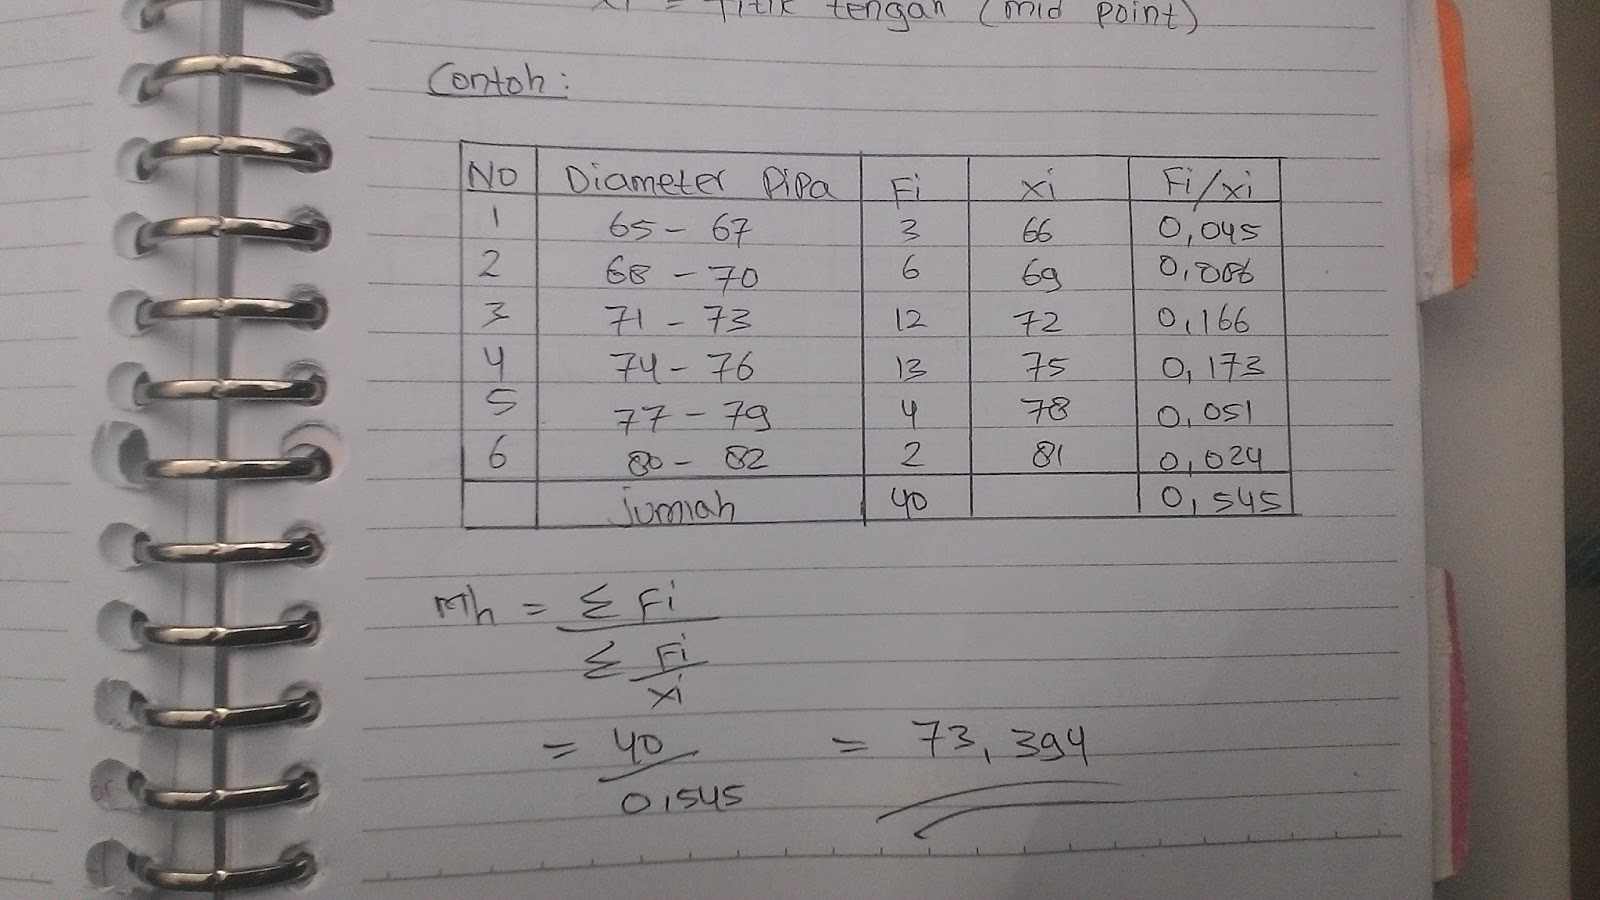 xi = Titik tengah (mid point)
Contoh:
No Diameter Pipa Fi xi Fi/xi
1 65 - 67 3 66 0,045
2 68 - 70 6 69 0,086
3 71 - 73 12 72 0,166
4 74 - 76 13 75 0,173
5 77 - 79 4 78 0,051
6 80 - 82 2 81 0,024
jumlah 40 0,545
Mh = Σ Fi
Σ Fi
xi
= 40 = 73,394
0,545